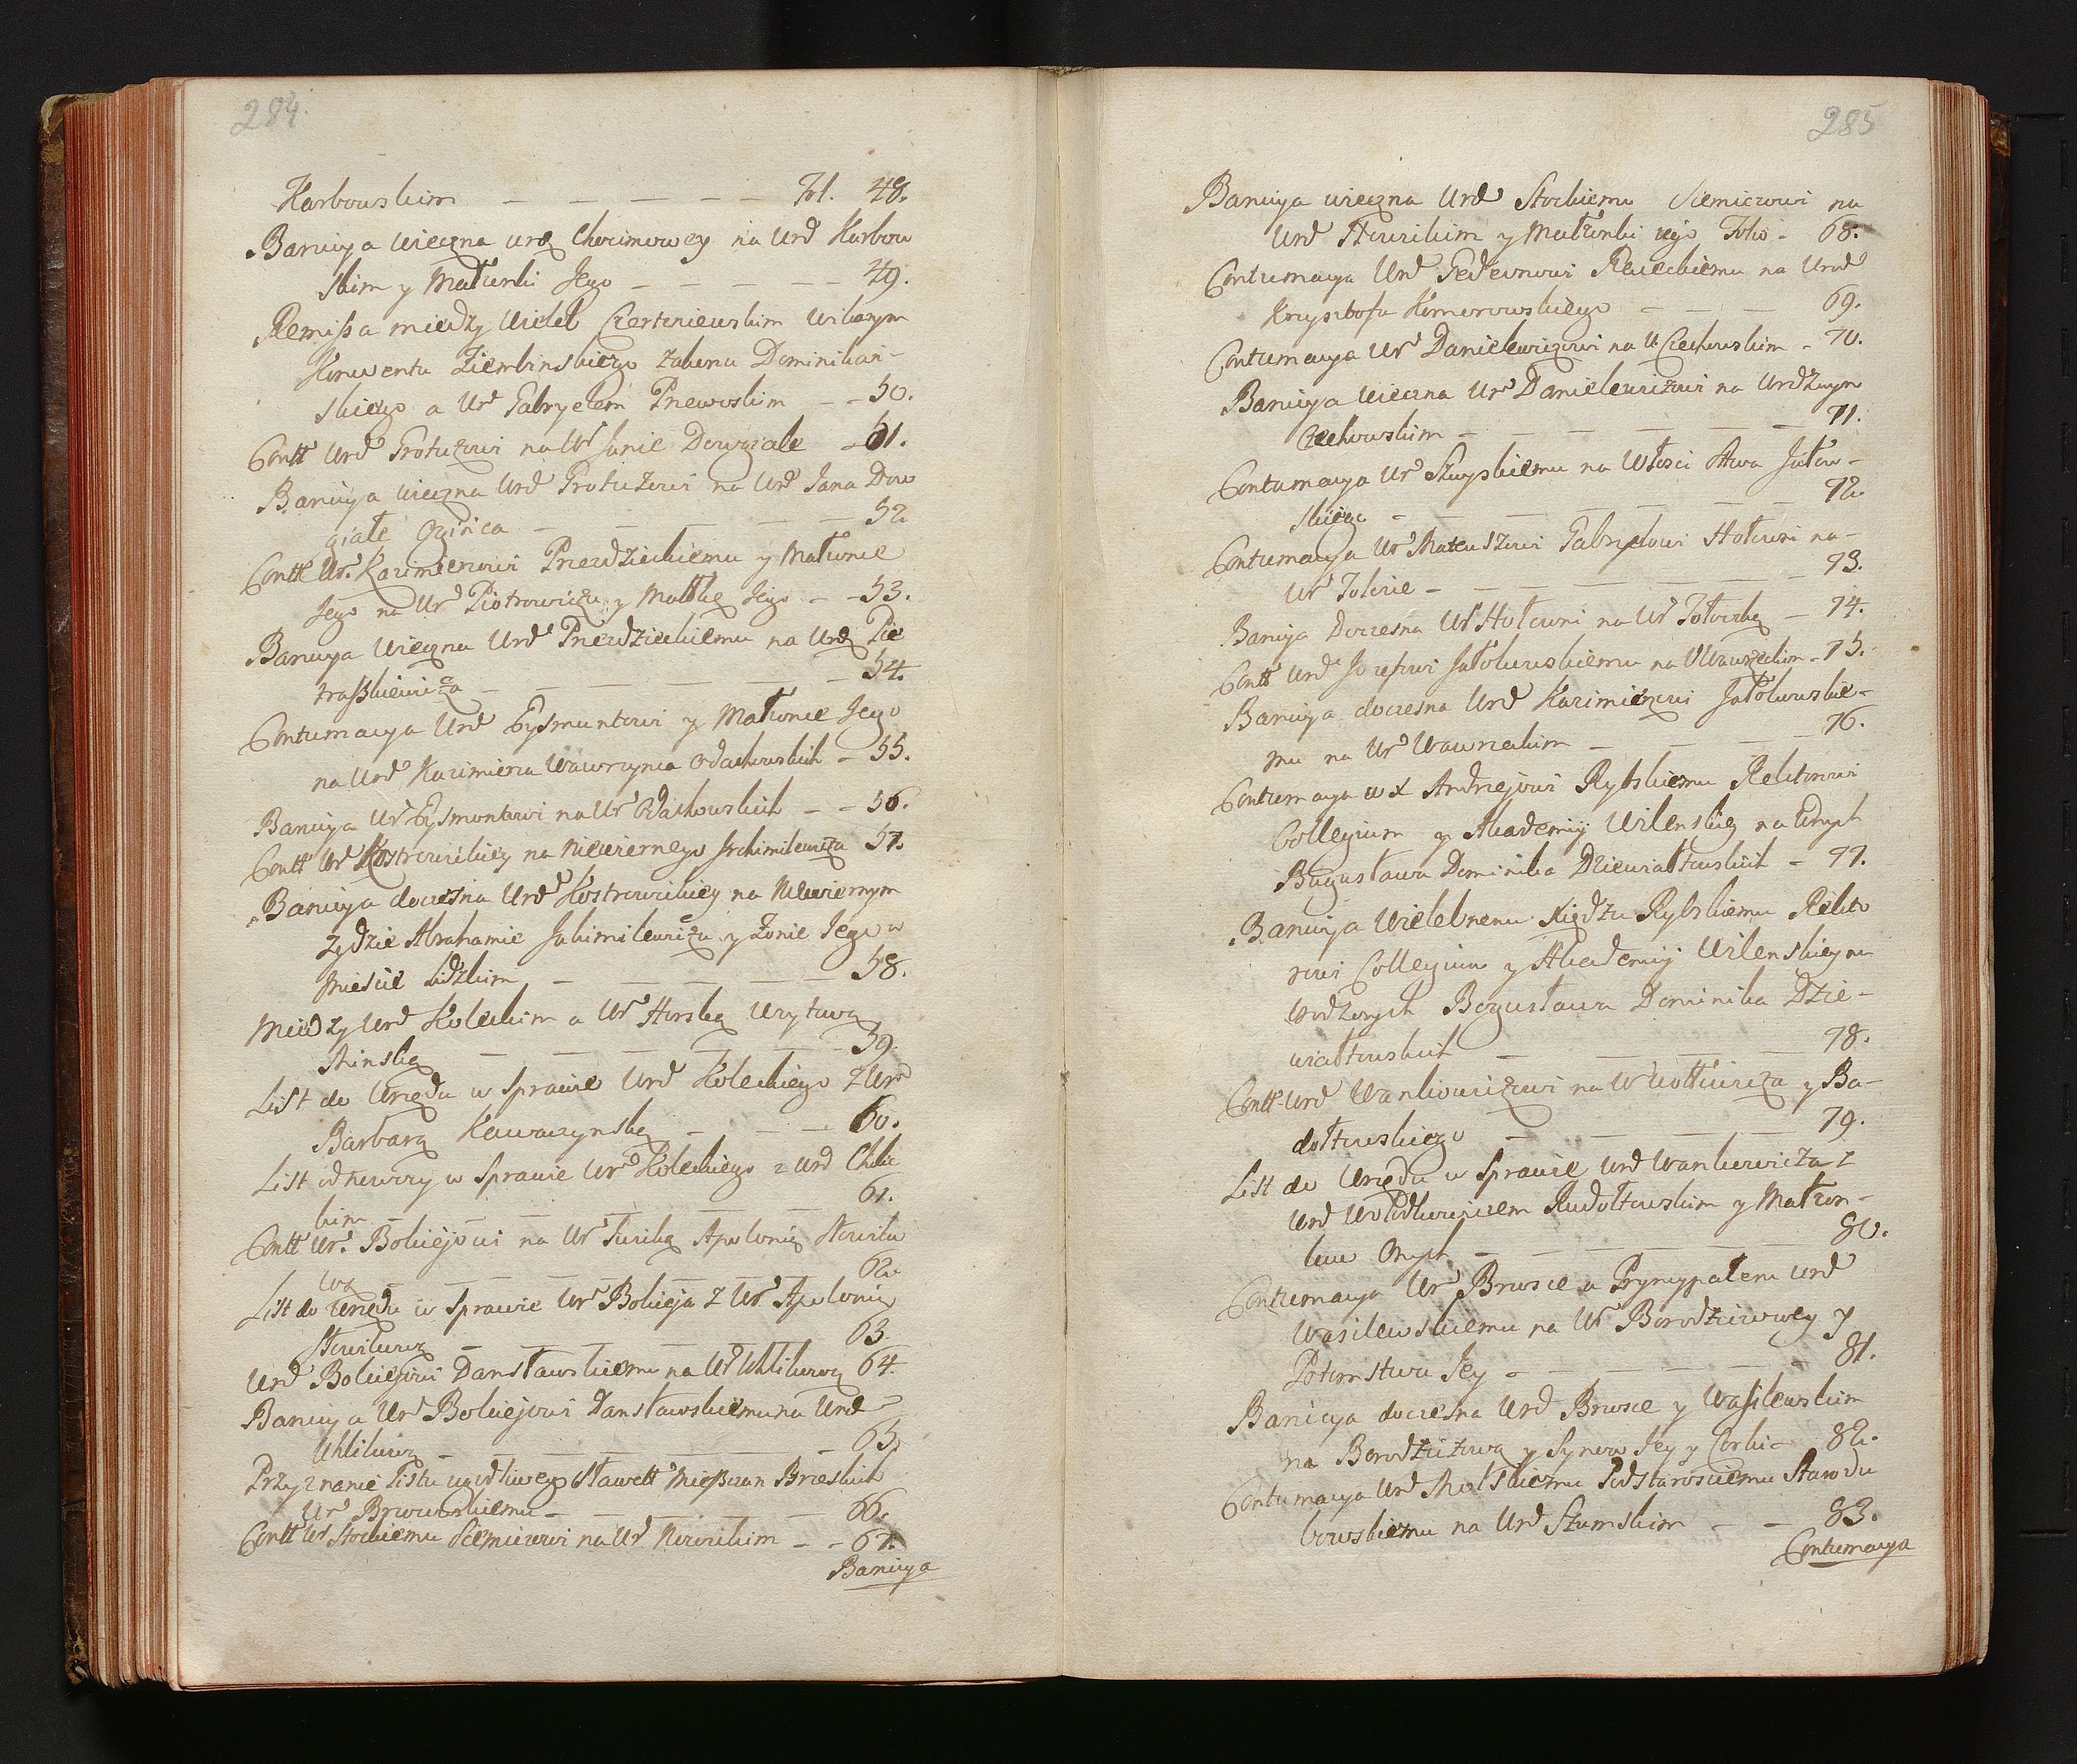 284.
Karbowskim — — — — — — Fol. 48.
Banicya wieczna urq Chocimowey na Urd Karbow
skim y Małonki Jego — — — — — 49.
Remissa miedzy Wieleb Czerteniewskim Wikarym
Konwentu Ziembinskiego Zakonu Dominikań-
skiego a Ur Gabryelem Pniewskim — — 50.
Contt Urd Protuzowi na Ur Janie Dowgiale — 51.
Banicya wieczna Urd Protuzowi na Urd Jana Dow
giałe Ogińca — — — — — 52
Contt Ur. Kazimierowi Przezdzieckiemu y Małonce
Jego na Ur Piotrowicżu y Mattkę Jego — — 53.
Banicya wieczna Urd Przezdzieckiemu na Urq Pie
traszkiewicza — — — — — — 54.
Contumacya Urd Eysmuntowi y Małonce Jego
na Urd Kazimierza Wawrzynca Odachowskich — 55.
Banicya Ur Eysmontowi na Ur Odachowskich — — 56.
Contt Ur Kostrowickiey na Niewiernego Jochimilewicza 57.
Banicya doczesna Urd Kostrowickiey na Niewiernym
Zydzie Abrahamie Jakimilewiczu y Zonie Jego w
Mieście Lidzkim — — — — — 58.
Miedzy Urd Koleckim a Ur Horską Wyżwą
Minską — — — — — — — 59.
List do Urzędu w Sprawie Urd Koleckiego z Urd
Barbarą Kawaczynską — — — 60.
List odnewczy w Sprawie Urd Koleckiego z Urd Chlic
kim — — — — — — — 61.
Contt Ur. Bokiejowi na Ur Apolonię Skowiko
wą — — — — — — — 62
List do Urzędu w Sprawie Ur Bokieja z Ur Apolonią
— — — — — — 63.
Urd Bokiejowi Danstawskiemu na Ur Uklikową 64.
Banicya Ur Bokiejowi Danstawskiemu na Urd
Uklikową — — — — — — 65.
Przyznanie Listu Sławett Mieszczan Brzeskich
Ur Brzowskiemu — — — — — 66.
Contt Ur Stockiemu Siemiczowi na Ur Nowickim — — 67.
Banicya
285
Banicya wieczna Urd Stockiemu Siemiczowi na
Urd Nowickim y Małonki iego Folio — 68.
Contumacya Urd Gedeonowi Rewckiemu na Urod
Krzysztofa Komorowskiego — — — 69.
Contumacya Ur Danielewiczowi na U Czechowskim — 70.
Banicya wieczna Ur Danielewiczowi na Urdzonym
Czechowskim — — — — — — 71.
Contumacya Ur Szuyskiemu na Włości Stwa Jałow-
skiego — — — — — — — 72.
Contumacya Ur Mateuszowi Gabryelowi Hołowni na-
Ur Tolorie — — — — — — 73.
Banicya Doczesna Ur Hołowni na Ur Tołoczkę — 74.
Contt Urd Jozefowi Jałołowskiemu na U Wawrzeckim — 75.
Banicya doczesna Urd Kazimierzowi Jałołowskie-
mu na Ur Wawrzeckim — — — — 76.
Contumacya w X Andrzejowi Rybskiemu Rektorowi
Collegium y Akademij Wilenskiey na Urnych
Bogusława Dominika Dziewiałtowskich — 77.
Banicya Wielebnemu Xiędzu Rybskiemu Rekto
rowi Collegium y Akademij Wilenskiey na
Urodzonych Bogusława Dominika Dzie-
wiałtowskich — — — — 78.
Contt Urd Wankowiczowi na W Wołkowicza y Ba-
dołtowskiego — — — — — — 79.
List do Urzędu w Sprawie Urd Wankowicza z
Urd Wołodkowiczem Rudołtowskim y Małżon-
kow Onych — — — — — — 80.
Contumacya Ur Brwsce a Pryncypałem Urd
Wasilewskiemu na Ur Borodzicowey y
Potomstwu Jey — — — — — — 81.
Banicya doczesna Urd Brwsce y Wasilewskim
na Borodzicową y Synow Jey y Corki — 82.
Contumacya Urd Molskiemu Podstarościemu Starodu
bowskiemu na Urd Szumskim — — 83.
Contumacya